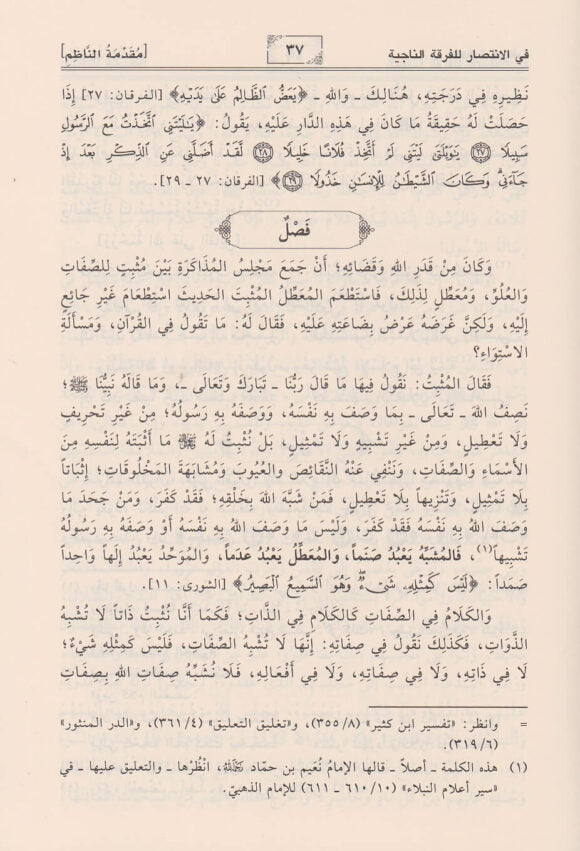 في الانتصار للفرقة الناجية ٣٧ [مُقَدِّمَةُ النَّاظِمِ]
نَظِيرِهِ فِي دَرَجَتِهِ، هُنَالِكَ ـ وَاللهِ ـ ﴿يَعَضُّ ٱلظَّالِمُ عَلَىٰ يَدَيْهِ﴾ [الفرقان: ٢٧] إِذَا
حَصَلَتْ لَهُ حَقِيقَةُ مَا كَانَ فِي هَذِهِ الدَّارِ عَلَيْهِ، يَقُولُ: ﴿يَٰلَيْتَنِى ٱتَّخَذْتُ مَعَ ٱلرَّسُولِ
سَبِيلًا ۝٢٧ يَٰوَيْلَتَىٰ لَيْتَنِى لَمْ أَتَّخِذْ فُلَانًا خَلِيلًا ۝٢٨ لَّقَدْ أَضَلَّنِى عَنِ ٱلذِّكْرِ بَعْدَ إِذْ
جَآءَنِى وَكَانَ ٱلشَّيْطَٰنُ لِلْإِنسَٰنِ خَذُولًا ۝٢٩﴾ [الفرقان: ٢٧ ـ ٢٩].
فَصْلٌ
وَكَانَ مِنْ قَدَرِ اللهِ وَقَضَائِهِ؛ أَنْ جَمَعَ مَجْلِسُ المُذَاكَرَةِ بَيْنَ مُثْبِتٍ لِلصِّفَاتِ
وَالعُلُوِّ، وَمُعَطِّلٍ لِذَلِكَ، فَاسْتَطْعَمَ المُعَطِّلُ المُثْبِتَ الحَدِيثَ اسْتِطْعَامَ غَيْرِ جَائِعٍ
إِلَيْهِ، وَلَكِنَّ غَرَضَهُ عَرْضُ بِضَاعَتِهِ عَلَيْهِ، فَقَالَ لَهُ: مَا تَقُولُ فِي القُرْآنِ، وَمَسْأَلَةِ
الاسْتِوَاءِ؟
فَقَالَ المُثْبِتُ: نَقُولُ فِيهَا مَا قَالَ رَبُّنَا ـ تَبَارَكَ وَتَعَالَى ـ، وَمَا قَالَهُ نَبِيُّنَا ﷺ؛
نَصِفُ اللهَ ـ تَعَالَى ـ بِمَا وَصَفَ بِهِ نَفْسَهُ، وَوَصَفَهُ بِهِ رَسُولُهُ؛ مِنْ غَيْرِ تَحْرِيفٍ
وَلَا تَعْطِيلٍ، وَمِنْ غَيْرِ تَشْبِيهٍ وَلَا تَمْثِيلٍ، بَلْ نُثْبِتُ لَهُ ﷻ مَا أَثْبَتَهُ لِنَفْسِهِ مِنَ
الأَسْمَاءِ وَالصِّفَاتِ، وَنَنْفِي عَنْهُ النَّقَائِصَ وَالعُيُوبَ وَمُشَابَهَةَ المَخْلُوقَاتِ؛ إِثْبَاتاً
بِلَا تَمْثِيلٍ، وَتَنْزِيهاً بِلَا تَعْطِيلٍ، فَمَنْ شَبَّهَ اللهَ بِخَلْقِهِ؛ فَقَدْ كَفَرَ، وَمَنْ جَحَدَ مَا
وَصَفَ اللهُ بِهِ نَفْسَهُ فَقَدْ كَفَرَ، وَلَيْسَ مَا وَصَفَ اللهُ بِهِ نَفْسَهُ أَوْ وَصَفَهُ بِهِ رَسُولُهُ
تَشْبِيهاً(١)، فَالمُشَبِّهُ يَعْبُدُ صَنَماً، وَالمُعَطِّلُ يَعْبُدُ عَدَماً، وَالمُوَحِّدُ يَعْبُدُ إِلَهاً وَاحِداً
صَمَداً: ﴿لَيْسَ كَمِثْلِهِۦ شَىْءٌ وَهُوَ ٱلسَّمِيعُ ٱلْبَصِيرُ﴾ [الشورى: ١١].
وَالكَلَامُ فِي الصِّفَاتِ كَالكَلَامِ فِي الذَّاتِ؛ فَكَمَا أَنَّا نُثْبِتُ ذَاتاً لَا تُشْبِهُ
الذَّوَاتِ، فَكَذَلِكَ نَقُولُ فِي صِفَاتِهِ: إِنَّهَا لَا تُشْبِهُ الصِّفَاتِ، فَلَيْسَ كَمِثْلِهِ شَيْءٌ؛
لَا فِي ذَاتِهِ، وَلَا فِي صِفَاتِهِ، وَلَا فِي أَفْعَالِهِ، فَلَا نُشَبِّهُ صِفَاتِ اللهِ بِصِفَاتِ
= وانظر: «تفسير ابن كثير» (٣٥٥/٨)، و«تغليق التعليق» (٣٦١/٤)، و«الدر المنثور»
(٣١٩/٦).
(١) هذه الكلمة ـ أصلاً ـ قالها الإمامُ نُعَيم بن حمّاد رحمه الله، انْظُرْها ـ والتعليق عليها ـ في
«سير أعلام النبلاء» (٦١٠/١٠ ـ ٦١١) للإمام الذهبيّ.